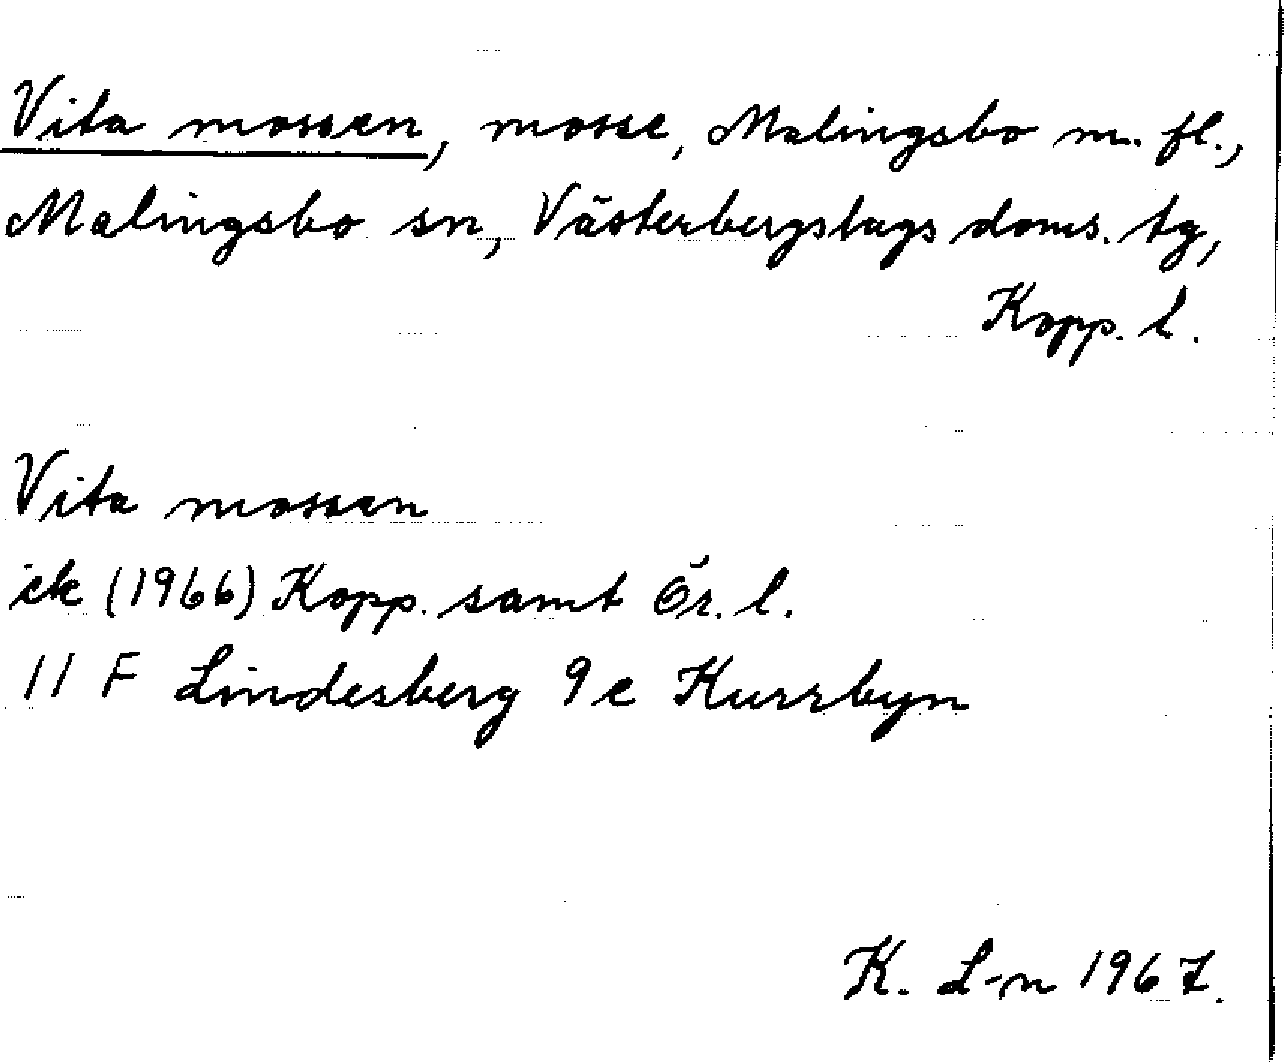 Vita mossen, mosse, Malingsbo m. fl.,
Malingsbo sn, Västerbergslags doms. tg,
Kopp. l.
Vita mossen
ek (1966) Kopp. samt Ör. l.
11 F Lindesberg 9e Kurrbyn
K. L-n 1967.